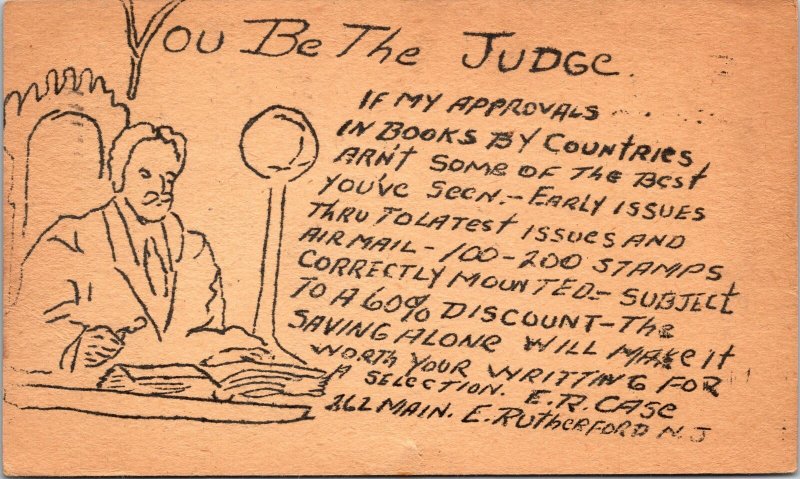 You Be The Judge.
IF MY APPROVALS
IN BOOKS BY COUNTRIES
ARN'T SOME OF THE BEST
YOU'VE SEEN.- EARLY ISSUES
THRU TO LATEST ISSUES AND
AIR MAIL - 100-200 STAMPS
CORRECTLY MOUNTED- SUBJECT
TO A 60% DISCOUNT-THE
SAVING ALONE WILL MAKE IT
WORTH YOUR WRITTING FOR
A SELECTION. E.R. CASE
262 MAIN. E. RUTHERFORD N.J